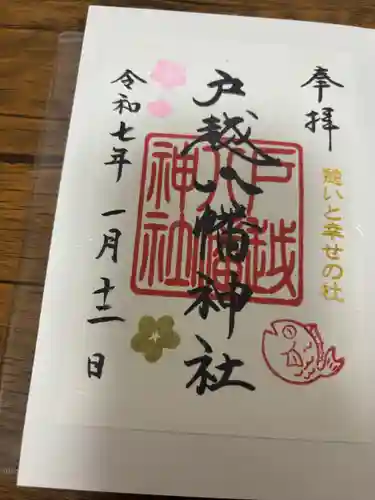 奉拝
憩いと幸せの社
戸越八幡神社
戸越八幡神社
令和七年 一月十二日